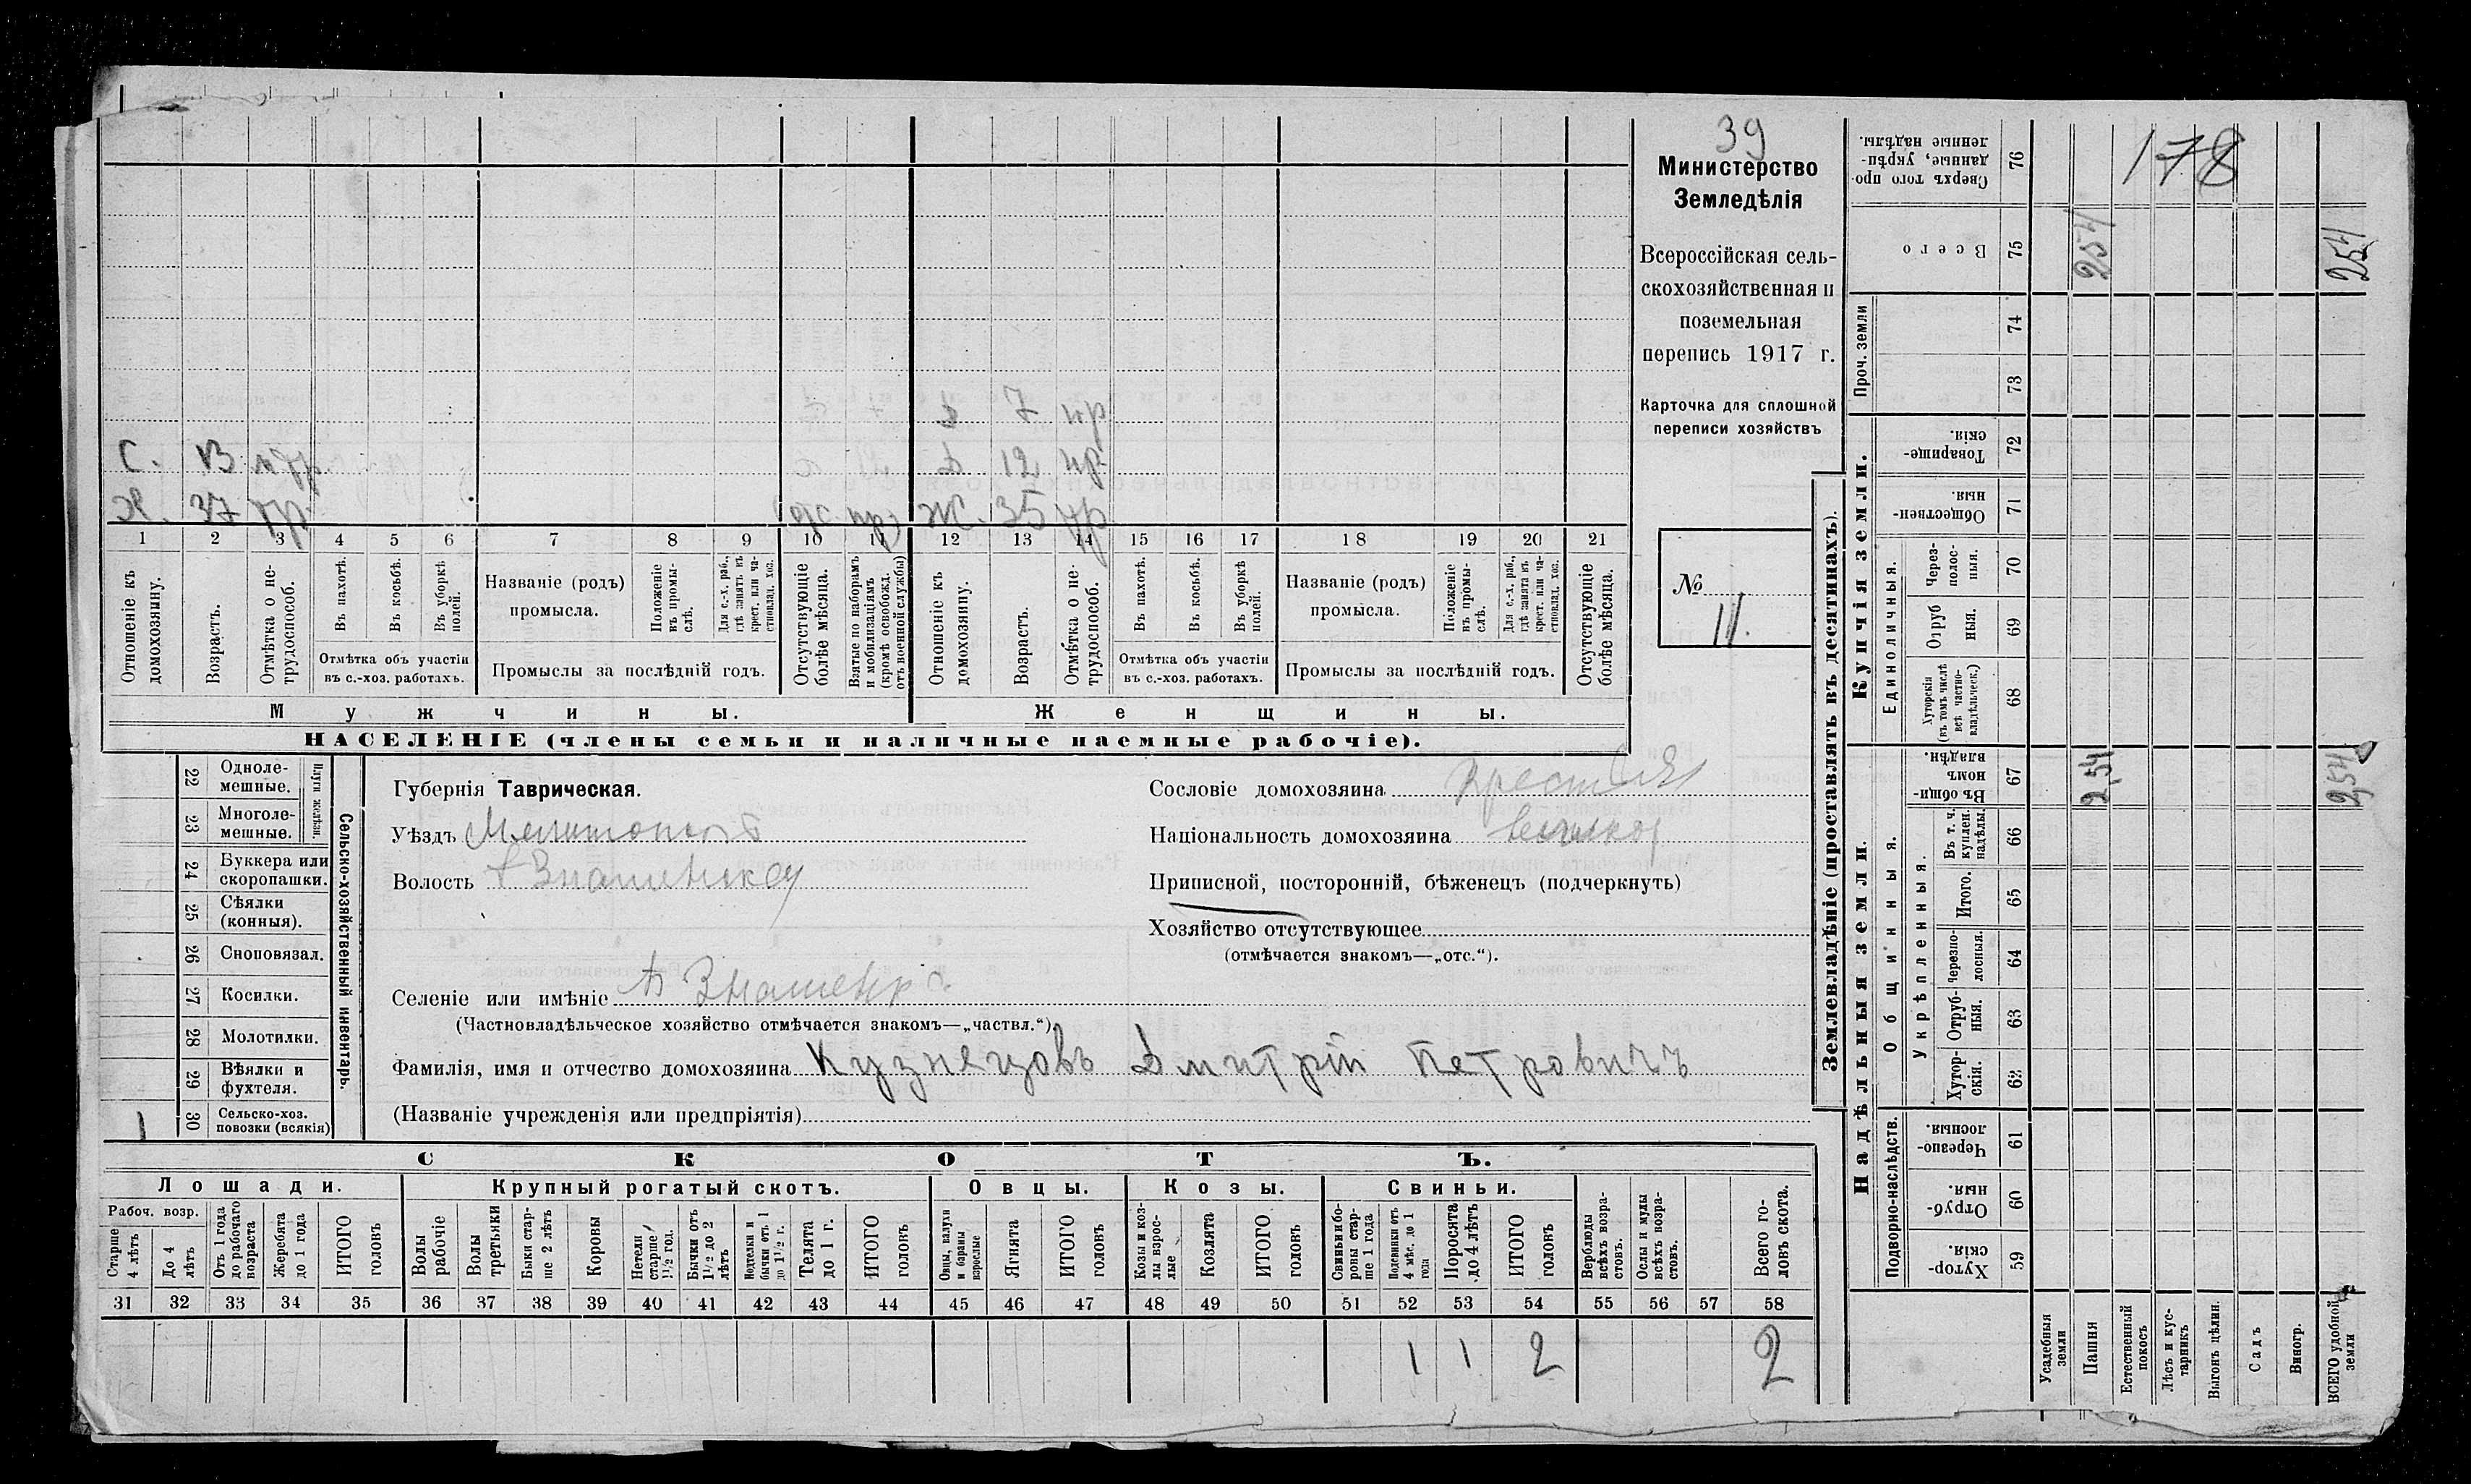 39
Министерство
Земледѣлія
Всероссійская сель-
скохозяйственная и
поземельная
перепись 1917 г.
Карточка для сплошной
переписи хозяйствъ
№ 11.
178
7 нр
С. 13 12 нр
Х. 37 Ж. 35
1 2 3 4 5 6 7 8 9 10 11 12 13 14 15 16 17 18 19 20 21
Отношеніе къ домохозяину.
Возрастъ.
Отмѣтка о не-трудоспособ.
Въ пахотѣ.
Въ косьбѣ.
Въ уборкѣ полей.
Отмѣтка объ участіи въ с.-хоз. работахъ.
Названіе (родъ) промысла.
Положеніе въ промы-слѣ.
Для с.-х. раб., гдѣ занятъ въ крест. или ча-стновлад. хоз.
Промыслы за послѣдній годъ.
Отсутствующіе болѣе мѣсяца.
Взятые по наборамъ и мобилизаціямъ (кромѣ освобожд. отъ военной службы)
Отношеніе къ домохозяину.
Возрастъ.
Отмѣтка о не-трудоспособ.
Въ пахотѣ.
Въ косьбѣ.
Въ уборкѣ полей.
Отмѣтка объ участіи въ с.-хоз. работахъ.
Названіе (родъ) промысла.
Положеніе въ промы-слѣ.
Для с.-х. раб., гдѣ занята въ крест. или ча-стновлад. хоз.
Промыслы за послѣдній годъ.
Отсутствующіе болѣе мѣсяца.
Мужчины. Женщины.
НАСЕЛЕНІЕ (члены семьи и наличные наемные рабочіе).
Сельско-хозяйственный инвентарь.
Плуги желѣзн.
22 Одноле-мешные.
23 Многоле-мешные.
24 Буккера или скоропашки.
25 Сѣялки (конныя).
26 Сноповязал.
27 Косилки.
28 Молотилки.
29 Вѣялки и фухтеля.
1 30 Сельско-хоз. повозки (всякія)
Губернія Таврическая.
Уѣздъ
Волость
Селеніе или имѣніе
(Частновладѣльческое хозяйство отмѣчается знакомъ—„частвл.“).
Фамилія, имя и отчество домохозяина Кузнецовъ Дмитрій Петровичъ
(Названіе учрежденія или предпріятія)
Сословіе домохозяина
Національность домохозяина
Приписной, посторонній, бѣженецъ (подчеркнуть)
Хозяйство отсутствующее
(отмѣчается знакомъ—„отс.“).
СКОТЪ.
Лошади. Крупный рогатый скотъ. Овцы. Козы. Свиньи.
Рабоч. возр.
Старше 4 лѣтъ
До 4 лѣтъ
Отъ 1 года до рабочаго возраста
Жеребята до 1 года
ИТОГО головъ
Волы рабочіе
Волы третьяки
Быки стар-ше 2 лѣтъ
Коровы
Нетели старше 1½ год.
Бычки отъ 1½ до 2 лѣтъ
Подтелки и бычки отъ 1 до 1½ г.
Телята до 1 г.
ИТОГО головъ
Овцы, валухи и бараны взрослые
Ягнята
ИТОГО головъ
Козы и коз-лы взрос-лые
Козлята
ИТОГО головъ
Свиньи и бо-ровы стар-ше 1 года
Подсвинки отъ 4 мѣс. до 1 года
Поросята до 4 лѣтъ
ИТОГО головъ
Верблюды всѣхъ возра-стовъ.
Ослы и мулы всѣхъ возра-стовъ.
Всего го-ловъ скота.
31 32 33 34 35 36 37 38 39 40 41 42 43 44 45 46 47 48 49 50 51 52 53 54 55 56 57 58
1 1 2 2
Землевладѣніе (проставлять въ десятинахъ).
Надѣльныя земли. Купчія земли. Проч. земли
Подворно-наслѣдств.
Общинныя.
Укрѣпленныя.
Единоличныя.
Хутор-скія. 59
Отруб-ныя. 60
Черезпо-лосныя. 61
Хутор-скія. 62
Отруб-ныя. 63
Черезпо-лосныя. 64
Итого. 65
Въ т. ч. куплен. надѣлы. 66
Въ общи-номъ владѣн. 67
Хуторскія (въ томъ числѣ всѣ частно-владѣльческ.) 68
Отруб ныя. 69
Через-полос-ныя. 70
Обществен-ныя. 71
Товарище-скія. 72
73
74
Всего 75
Сверхъ того про-данные, укрѣп-ленные надѣлы. 76
Усадебныя земли
Пашня
Естественный покосъ
Лѣсъ и кус-тарникъ
Выгонъ цѣлин.
Садъ
Виногр.
ВСЕГО удобной земли
254 254
254 254